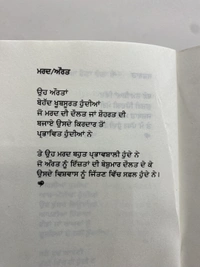 ਮਰਦ/ਔਰਤ
ਉਹ ਔਰਤਾਂ
ਬੇਹੱਦ ਖ਼ੂਬਸੂਰਤ ਹੁੰਦੀਆਂ
ਜੋ ਮਰਦ ਦੀ ਦੌਲਤ ਜਾਂ ਸ਼ੋਹਰਤ ਦੀ
ਬਜਾਏ ਉਸਦੇ ਕਿਰਦਾਰ ਤੋਂ
ਪ੍ਰਭਾਵਿਤ ਹੁੰਦੀਆਂ ਨੇ
ਤੇ ਉਹ ਮਰਦ ਬਹੁਤ ਪ੍ਰਭਾਵਸ਼ਾਲੀ ਹੁੰਦੇ ਨੇ
ਜੋ ਔਰਤ ਨੂੰ ਇੱਜ਼ਤਾਂ ਦੀ ਬੇਸ਼ੁਮਾਰ ਦੌਲਤ ਦੇ ਕੇ
ਉਸਦੇ ਵਿਸ਼ਵਾਸ ਨੂੰ ਜਿੱਤਣ ਵਿੱਚ ਸਫ਼ਲ ਹੁੰਦੇ ਨੇ।